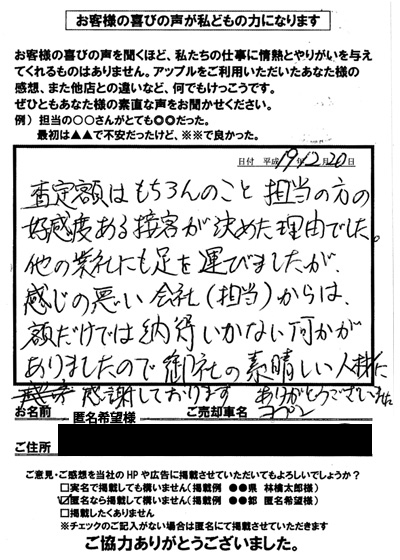 お客様の喜びの声が私どもの力になります
お客様の喜びの声を聞くほど、私たちの仕事に情熱とやりがいを与え
てくれるものはありません。アップルをご利用いただいたあなた様の
感想、また他店との違いなど、何でもけっこうです。
ぜひともあなた様の素直な声をお聞かせください。
例）担当の〇〇さんがとても◎◎だった。
最初は▲▲で不安だったけど、※※で良かった。
日付 平成 19年12月20日
査定額はもちろんのこと 担当の方の
好感度ある接客が決めた理由でした。
他の業社にも足を運びましたが、
感じの悪い会社(担当)からは、
額だけでは納得いかない何かが
ありましたので御社の素晴しい人材に
感謝しております ありがとうございました
お名前 匿名希望様 ご売却車名 コペン
ご住所
ご意見・ご感想を当社のHPや広告に掲載させていただいてもよろしいでしょうか？
□実名で掲載しても構いません（掲載例 ●●県 林檎太郎様）
☑匿名なら掲載して構いません（掲載例 ●●都 匿名希望様）
□掲載したくありません
※チェックのご記入がない場合は匿名にて掲載させていただきます
ご協力ありがとうございました。